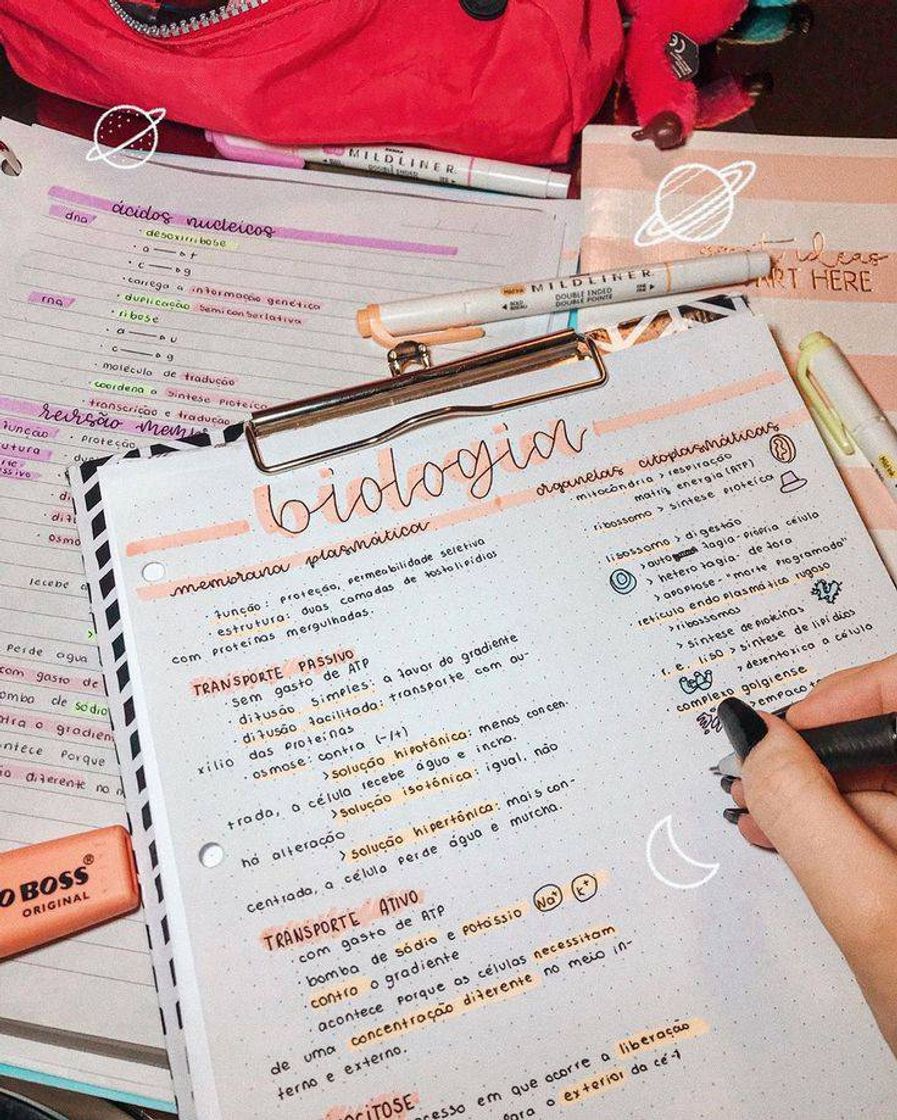 MILDLINER
MILDLINER
DOUBLE ENDED
DOUBLE POINTE
ideas
START HERE
ácidos nucleicos
dna
· desoxirribose
· a t
· c g
· carrega a informação genética
· duplicação semiconservativa
rna
· ribose
· a u
· c g
· molécula de tradução
· coordena a síntese proteica
· transcrição e tradução
revisão
função
· proteção
recebe
perde água
com gasto de
bomba de sódio
contra o gradien
acontece porque
diferente no
BOSS®
ORIGINAL
biologia
membrana plasmática
função: proteção, permeabilidade seletiva
· estrutura: duas camadas de fosfolipídios
com proteínas mergulhadas.
TRANSPORTE PASSIVO
· sem gasto de ATP
· difusão simples: a favor do gradiente
· difusão facilitada: transporte com au-
xílio das proteínas
· osmose: contra (-/+)
>solução hipotônica: menos concen-
trada, a célula recebe água e incha.
>solução isotônica: igual, não
há alteração
>solução hipertônica: mais con-
centrada, a célula perde água e murcha.
TRANSPORTE ATIVO
· com gasto de ATP
· bomba de sódio e potássio Na+ K+
contra o gradiente
· acontece porque as células necessitam
de uma concentração diferente no meio in-
terno e externo.
OCITOSE
cesso em que ocorre a liberação
para o exterior da cél
organelas citoplasmáticas
mitocôndria > respiração
matriz energia (ATP)
· ribossomo > síntese proteica
lisossomo > digestão
> auto fagia - própria célula
> heterofagia - de fora
> apoptose - "morte programada"
retículo endoplasmático rugoso
> ribossomos
> síntese de proteínas
r. e. liso > síntese de lipídios
> desentoxica a célula
complexo golgiense
> empacot